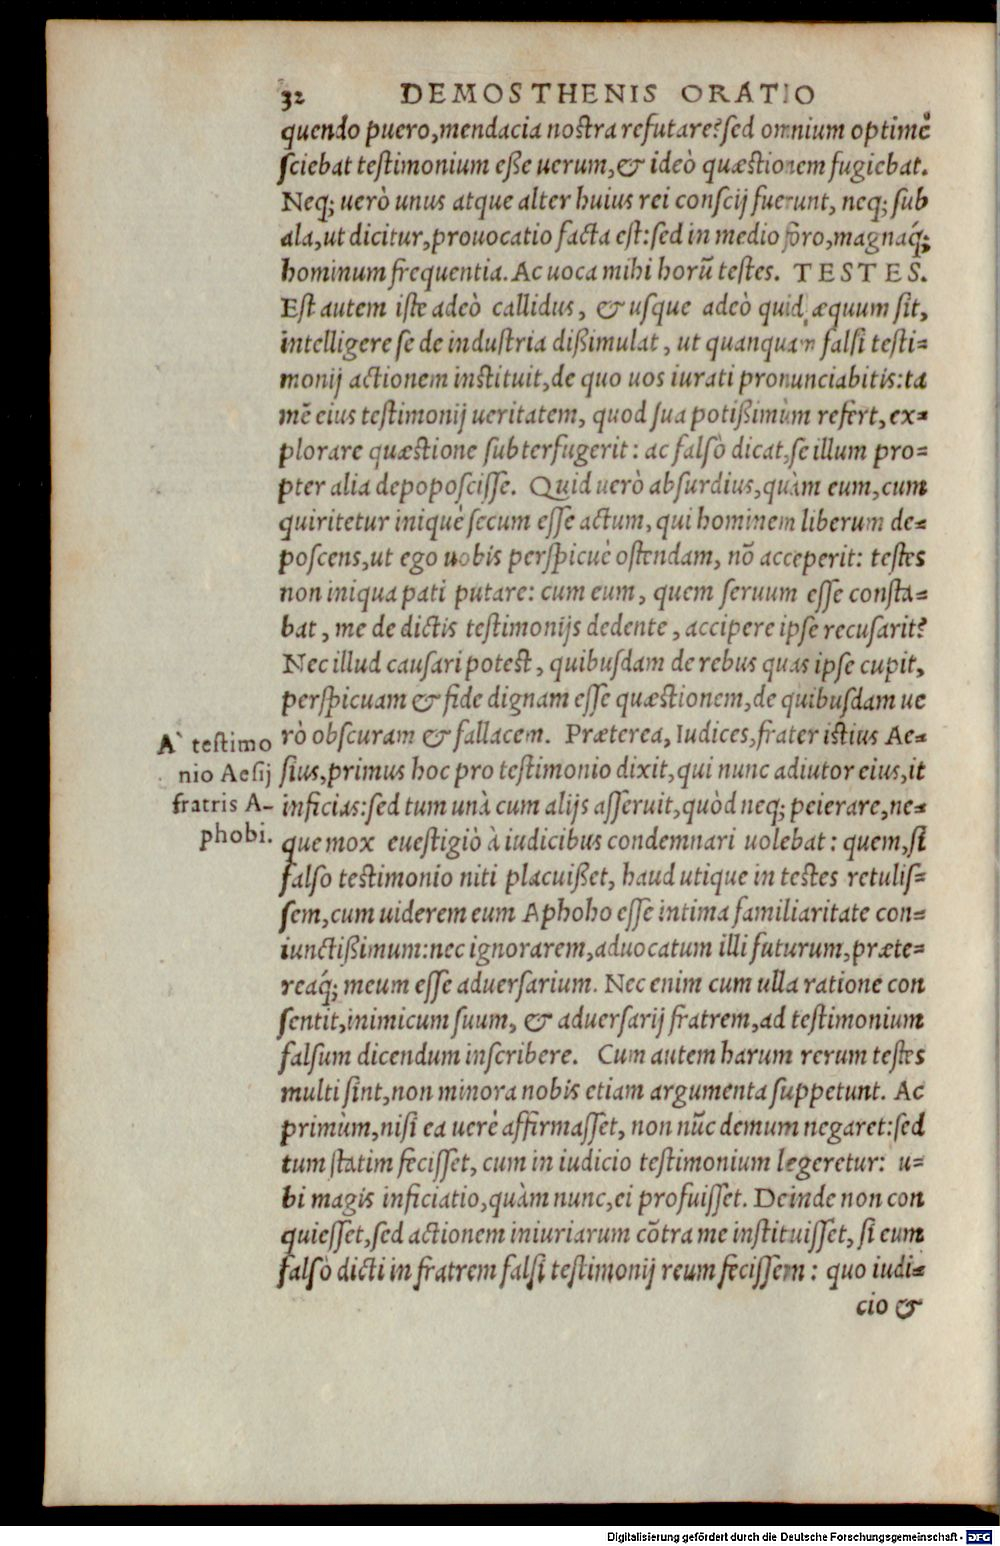 32 DEMOSTHENIS ORATIO
quendo puero, mendacia nostra refutare? sed omnium optimè
sciebat testimonium eße uerum, & ideò quæstionem fugiebat.
Neq; uerò unus atque alter huius rei conscij fuerunt, neq; sub
ala, ut dicitur, prouocatio facta est: sed in medio foro, magnaq́;
hominum frequentia. Ac uoca mihi horũ testes. TESTES.
Est autem iste adeò callidus, & usque adeò quid æquum sit,
intelligere se de industria dißimulat, ut quanquam falsi testi=
monij actionem instituit, de quo uos iurati pronunciabitis: ta
mẽ eius testimonij ueritatem, quod sua potißimùm refert, ex=
plorare quæstione subterfugerit: ac falsò dicat, se illum pro=
pter alia depoposcisse. Quid uerò absurdius, quàm eum, cum
quiritetur iniquè secum esse actum, qui hominem liberum de=
poscens, ut ego uobis perspicuè ostendam, nõ acceperit: testes
non iniqua pati putare: cum eum, quem seruum esse consta=
bat, me de dictis testimonijs dedente, accipere ipse recusarit?
Nec illud causari potest, quibusdam de rebus quas ipse cupit,
perspicuam & fide dignam esse quæstionem, de quibusdam ue
rò obscuram & fallacem. Præterea, Iudices, frater istius Ae=
sius, primus hoc pro testimonio dixit, qui nunc adiutor eius, it
inficias: sed tum unà cum alijs asseruit, quòd neq; peierare, ne=
que mox euestigiò à iudicibus condemnari uolebat: quem, si
falso testimonio niti placuißet, haud utique in testes retulis=
sem, cum uiderem eum Aphoho esse intima familiaritate con=
iunctißimum: nec ignorarem, aduocatum illi futurum, præte=
reaq́; meum esse aduersarium. Nec enim cum ulla ratione con
sentit, inimicum suum, & aduersarij fratrem, ad testimonium
falsum dicendum inscribere. Cum autem harum rerum testes
multi sint, non minora nobis etiam argumenta suppetunt. Ac
primùm, nisi ea uerè affirmasset, non nũc demum negaret: sed
tum statim fecisset, cum in iudicio testimonium legeretur: u=
bi magis inficiatio, quàm nunc, ei profuisset. Deinde non con
quiesset, sed actionem iniuriarum cõtra me instituisset, si eum
falsò dicti in fratrem falsi testimonij reum fecissem: quo iudi=
cio &
A` testimo
nio Aesij
fratris A-
phobi.
Digitalisierung gefördert durch die Deutsche Forschungsgemeinschaft - DFG